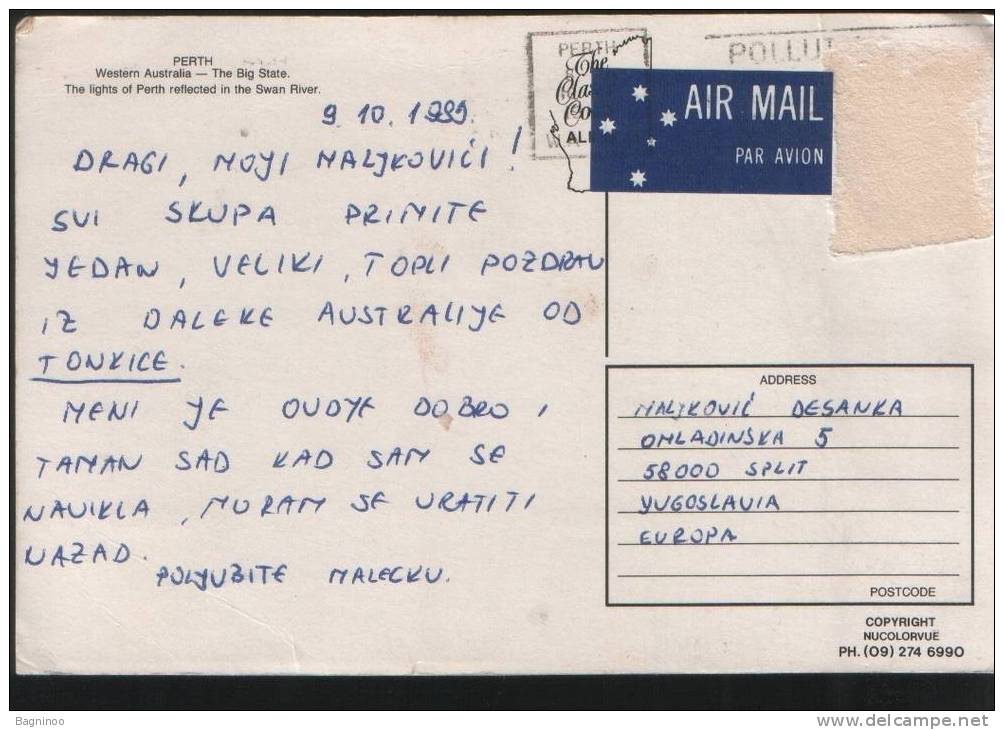 PERTH
Western Australia — The Big State.
The lights of Perth reflected in the Swan River.
PERTH
The
AIR MAIL
PAR AVION
9. 10. 1989.
DRAGI, MOJI MALJKOVIĆI!
SVI SKUPA PRIMITE
JEDAN, VELIKI, TOPLI POZDRAV
IZ DALEKE AUSTRALIJE OD
TONKICE.
MENI JE OVDJE DOBRO I
TAMAN SAD KAD SAM SE
NAVIKLA, MORAM SE VRATITI
NAZAD.
POLJUBITE MALECKU.
ADDRESS
MALJKOVIĆ DESANKA
OMLADINSKA 5
58000 SPLIT
YUGOSLAVIA
EUROPA
POSTCODE
COPYRIGHT
NUCOLORVUE
PH. (09) 274 6990
Bagninoo
www.delcampe.net